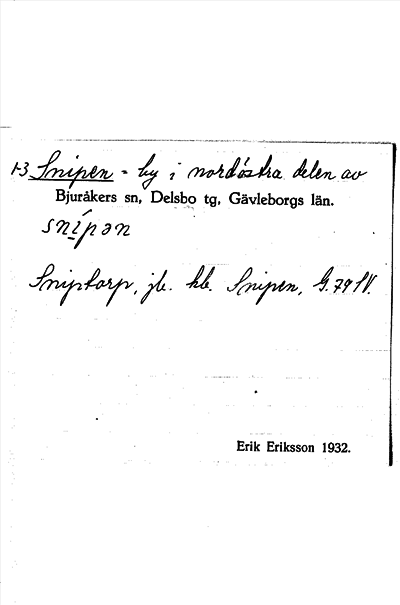 1-3 Snipen - by i nordöstra delen av
Bjuråkers sn, Delsbo tg, Gävleborgs län.
snípən
Sniptorp, jb. hb. Snipen, G. 79 SV.
Erik Eriksson 1932.